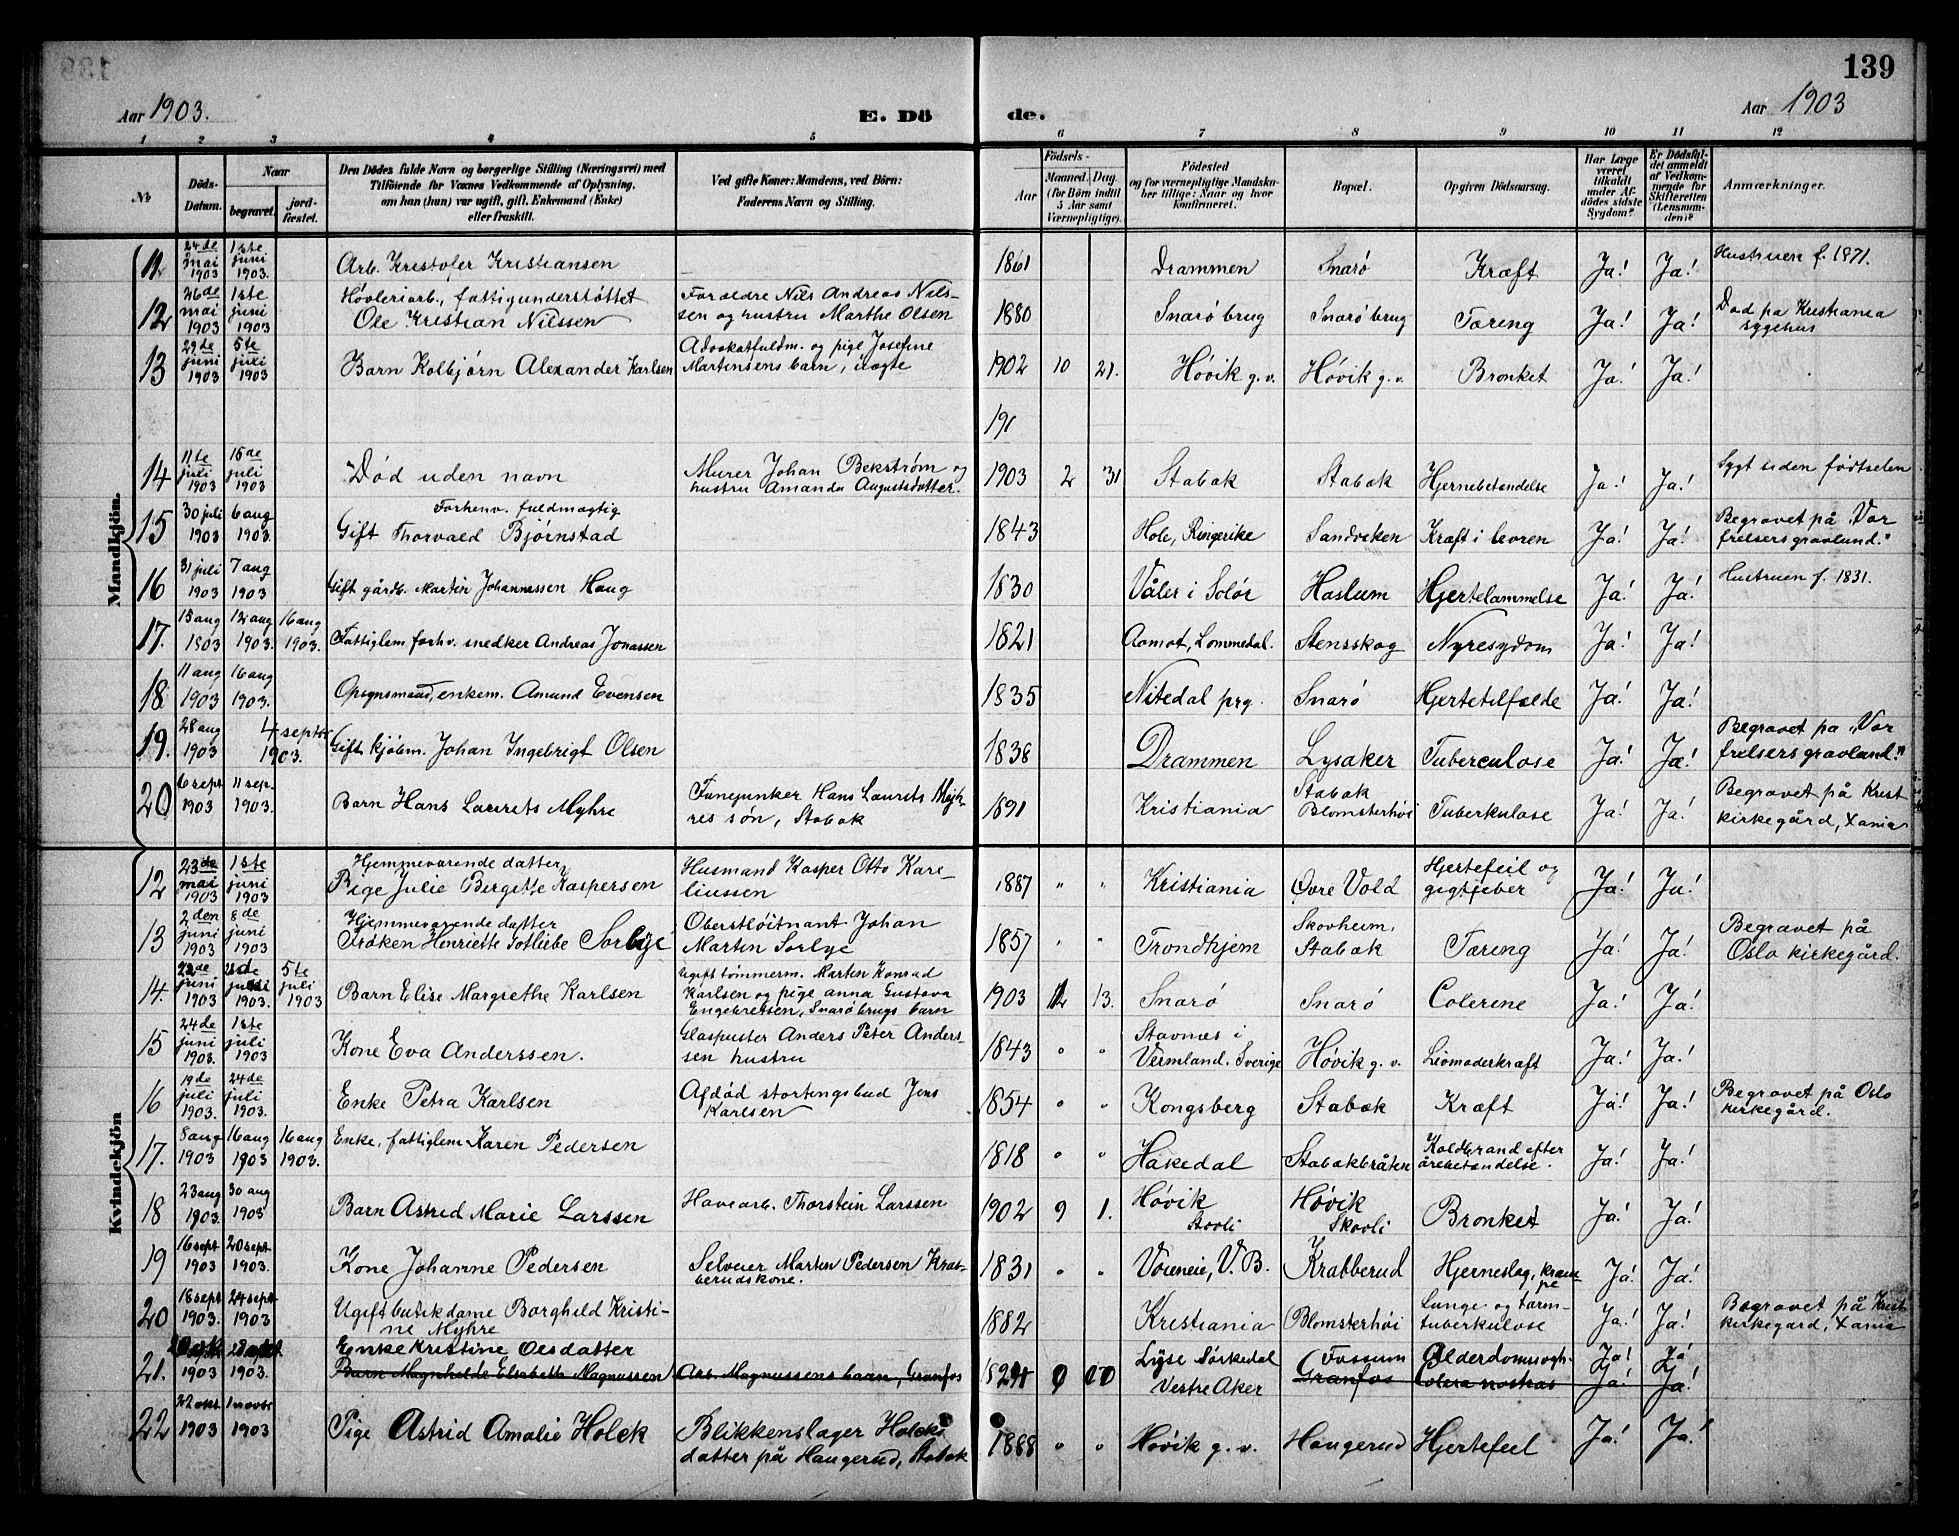 139
Aar 1903. E. Dö de. Aar 1903
1 2 3 4 5 6 7 8 9 10 11 12
№ Döds-Datum. Naar begravet. jordfæstet. Den Dödes fulde Navn og borgerlige Stilling (Næringsvei) med Tilföiende for Voxnes Vedkommende af Oplysning, om han (hun) var ugift, gift, Enkemand (Enke) eller fraskilt. Ved gifte Koner: Mandens, ved Börn: Faderens Navn og Stilling. Födsels- Aar Maaned. Dag. (for Börn indtil 5 Aar samt Værnepligtige). Födested og for værnepligtige Mandskaber tillige: Naar og hvor konfirmeret. Bopæl. Opgiven Dödsaarsag. Har Læge været tilkaldt under Afdödes sidste Sygdom? Er Dödsfaldet anmeldt af Vedkommende for Skifteretten (Lensmanden)? Anmærkninger.
Mandkjön.
11 24de mai 1903 1ste juni 1903. Arb. Kristofer Kristiansen 1861 Drammen Snarö Kræft Ja! Ja! Hustruen f. 1871.
12 26de mai 1903 1ste juni 1903 Høvleriarb., fattigunderstøttet Ole Kristian Nilssen Forældre Nils Andreas Nilssen og hustru Marthe Olsen 1880 Snarö brug Snarö brug Tæring Ja! Ja! Død på Kristiania sygehus
13 29de juni 1903 5te juli 1903 Barn Kolbjørn Alexander Karlsen Advokatfuldm. og pige Josefine Martinsens barn, uægte 1902 10 21. Høvik g.v. Høvik g.v. Bronket Ja! Ja!
191
14 11te juli 1903 15de juli 1903 Død uden navn Murer Johan Bekstrøm og hustru Amanda Augustsdatter. 1903 2 31 Stabæk Stabæk Hjernebetændelse Ja! Ja! Sygt siden fødtselen
15 30 juli 1903 6 aug 1903. Forhenv. fuldmægtig Gift Thorvald Bjørnstad 1843 Hole, Ringerike Sandviken Kræft i leveren Ja! Ja! Begravet på „Vor frelsers gravlund."
16 31 juli 1903 7 aug 1903 Gift gårdb. Martin Johannessen Haug 1830 Våler i Solör Haslum Hjertelammelse Ja! Ja! Hustruen f. 1831.
17. 15 aug 1903 12 aug 1903. 16 aug 1903. Fattiglem forhv. snedker Andreas Jonassen 1821 Aamot, Lommedal. Stensskog Nyresygdom Ja! Ja!
18 11 aug 1903 16 aug 1903. Opsynsmand, enkem. Amund Evensen 1835 Nitedal prg. Snarö Hjertetilfælde Ja! Ja!
19. 28 aug 1903 4 septbr 1903. Gift kjøbm. Johan Ingebrigt Olsen 1838 Drammen Lysaker Tuberculose Ja! Ja! Begravet på „Vor frelsers gravlund."
20 6 sept 1903 11 sep. 1903. Barn Hans Laurits Myhre Hans Laurits Myhres søn, Stabæk 1891 Kristiania Stabæk Blomsterhøi Tuberkulose Ja! Ja! Begravet på Krist kirkegård, Xania
Kvindekjön
12 23de mai 1903 1ste juni 1903 Hjemmeværende datter Pige Julie Birgitte Kaspersen Husmand Kasper Otto Kareliussen 1887 " " Kristiania Øvre Vold Hjertefeil og gigtfeber Ja! Ja!
13 2den juni 1903 8de juni 1903 Hjemmeværende datter Frøken Henriette Gotliebe Sørbye Oberstløitnant Johan Martin Sørbye 1857 " " Trondhjem Skovheim, Stabæk Tæring Ja! Ja! Begravet på Oslo kirkegård.
14. 22de juni 1903 1903. 5te juli 1903 Barn Elise Margrethe Karlsen Ugift tømmerm. Martin Konrad Karlsen og pige Anna Gustava Engebretsen, Snarö brugs barn 1903 12 13. Snarö Snarö Colerine Ja! Ja!
15 24de juni 1903. 1ste juli 1903 Kone Eva Anderssen. Glaspuster Anders Peter Anderssen hustru 1843 " " Stavnæs i Vermland. Sverige Høvik g.v. Livmoderkræft Ja! Ja!
16 19de juli 1903. 24de juli 1903. Enke Petra Karlsen Afdød stortingsbud Jens Karlsen 1854 " " Kongsberg Stabæk Kræft Ja! Ja! Begravet på Oslo kirkegård.
17. 8 aug 1903 16 aug 1903 16 aug 1903. Enke, fattiglem Karen Pedersen 1818 " " Hakedal Stabækbråten Koldbrand efter årebetændelse. Ja! Ja!
18 23 aug 1903. 30 aug 1903 Barn Astrid Marie Larssen Havearb. Thorstein Larssen 1902 9 1. Høvik Skovli Høvik Skovli Bronket Ja! Ja!
19 16 sept 1903 20 sept 1903. Kone Johanne Pedersen Selveier Martin Pedersen Krabberudskone. 1831 " " Vøieneie, V.B. Krabberud Hjerneslag, krampe Ja! Ja!
20 18 sept 1903. 24 sept 1903 Ugift butikdame Borghild Kristine Myhre 1882 Kristiania Blomsterhøi Lunge og tarmtuberkulose Ja! Ja! Begravet på Krist kirkegård, Xania
21. 1903 1903. Enke Kristine Olsdatter Barn Magnhilde Elisabeth Magnussen Arb. Magnussens barn, Granfos Lyse Sørkedal Vestre Aker Fossum Granfos Alderdomssvgh. Colera nostras Ja! Ja! Ja! Ja!
22 22 okt 1903 1 novbr 1903 Pige Astrid Amalie Holck Blikkenslager Holcks datter på Haugerud, Stabæk 1888 " " Høvik g.v. Haugerud Hjertefeil Ja! Ja!